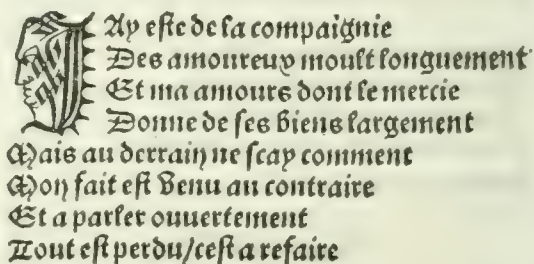 JAy este de la compaignie
Des amoureux moult longuement
Et ma amours dont le mercie
Donne de ses biens largement
Mais au derrain ne scay comment
Mon fait est venu au contraire
Et a parler ouuertement
Tout est perdu/cest a refaire